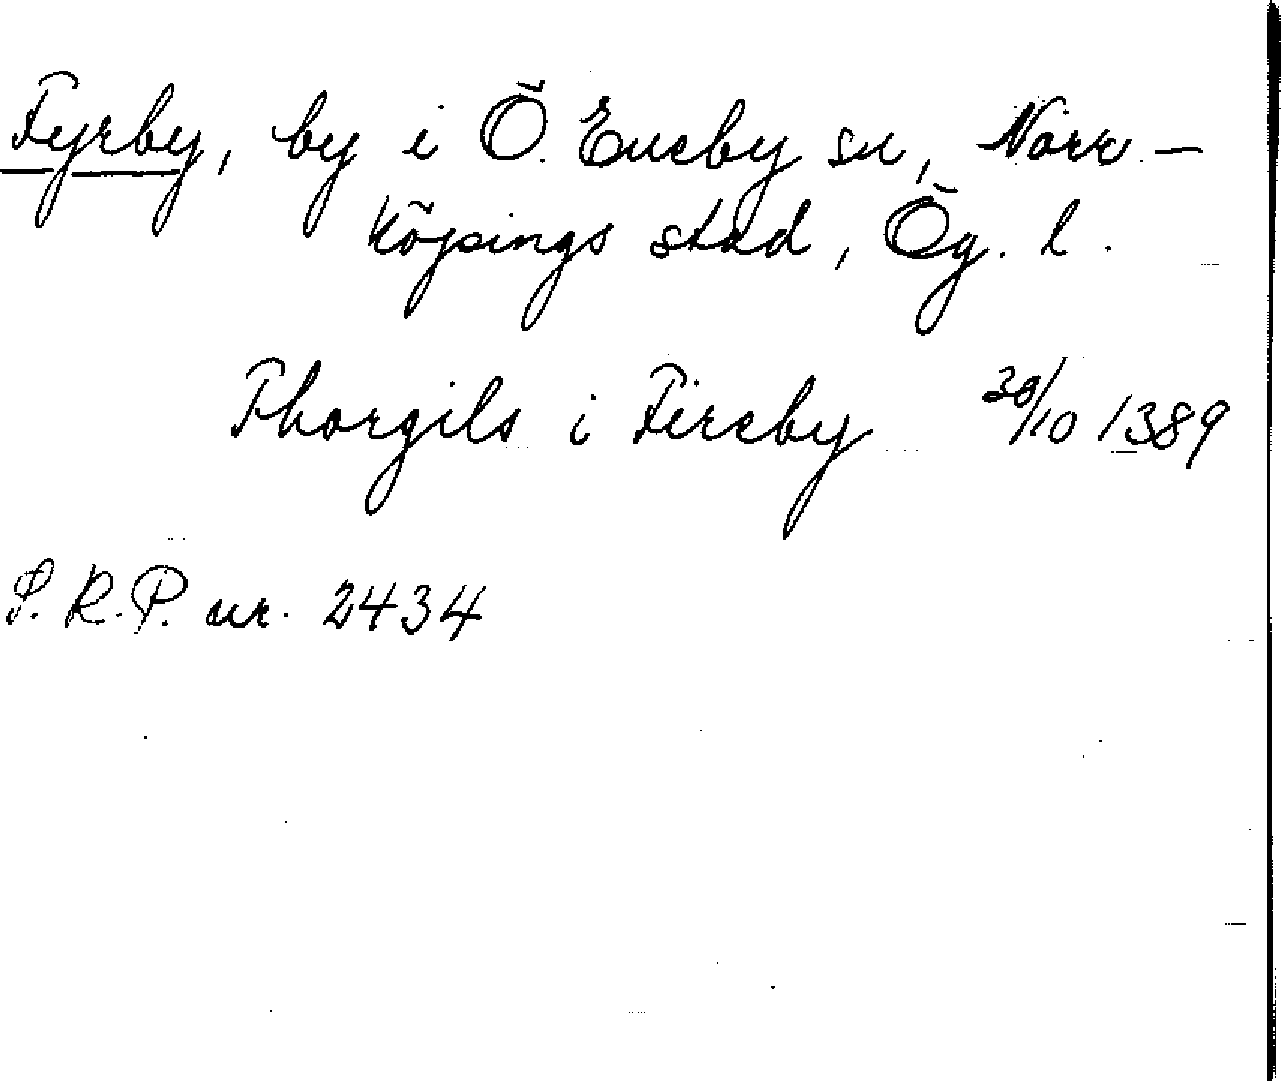 Fyrby, by i Ö. Eneby sn, Norr-
köpings stad, Ög. l.
Thorgils i Fireby 30/10 1389
S.R.P. nr. 2434